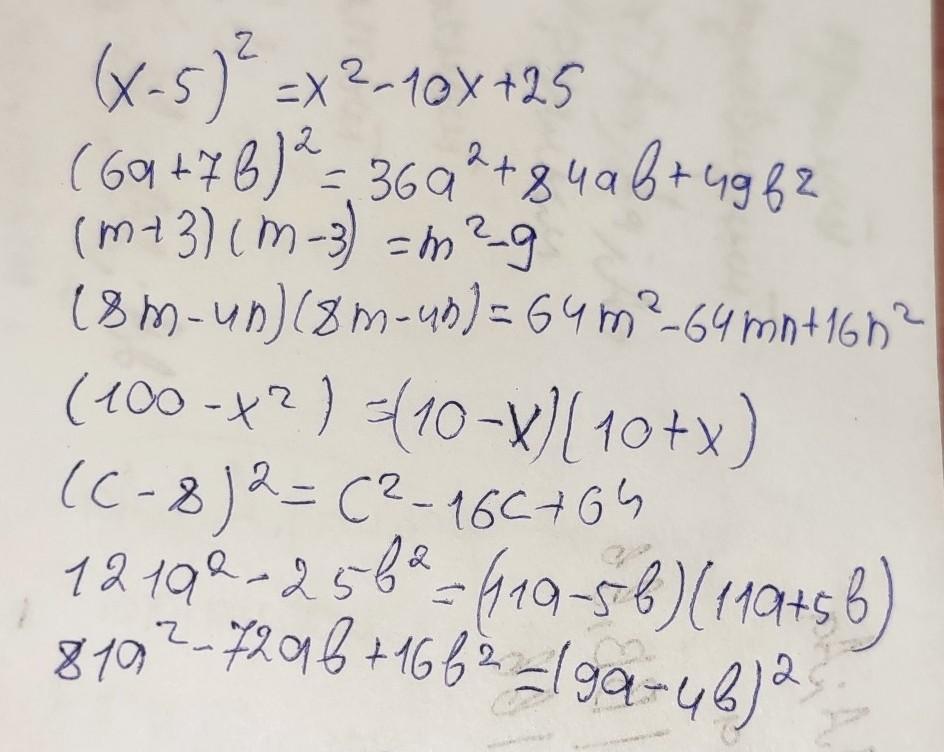 (x-5)² = x²-10x+25
(6a+7b)² = 36a²+84ab+49b²
(m+3)(m-3) = m²-9
(8m-4n)(8m-4n) = 64m²-64mn+16n²
(100-x²) = (10-x)(10+x)
(c-8)² = c²-16c+64
121a²-25b² = (11a-5b)(11a+5b)
81a²-72ab+16b² = (9a-4b)²